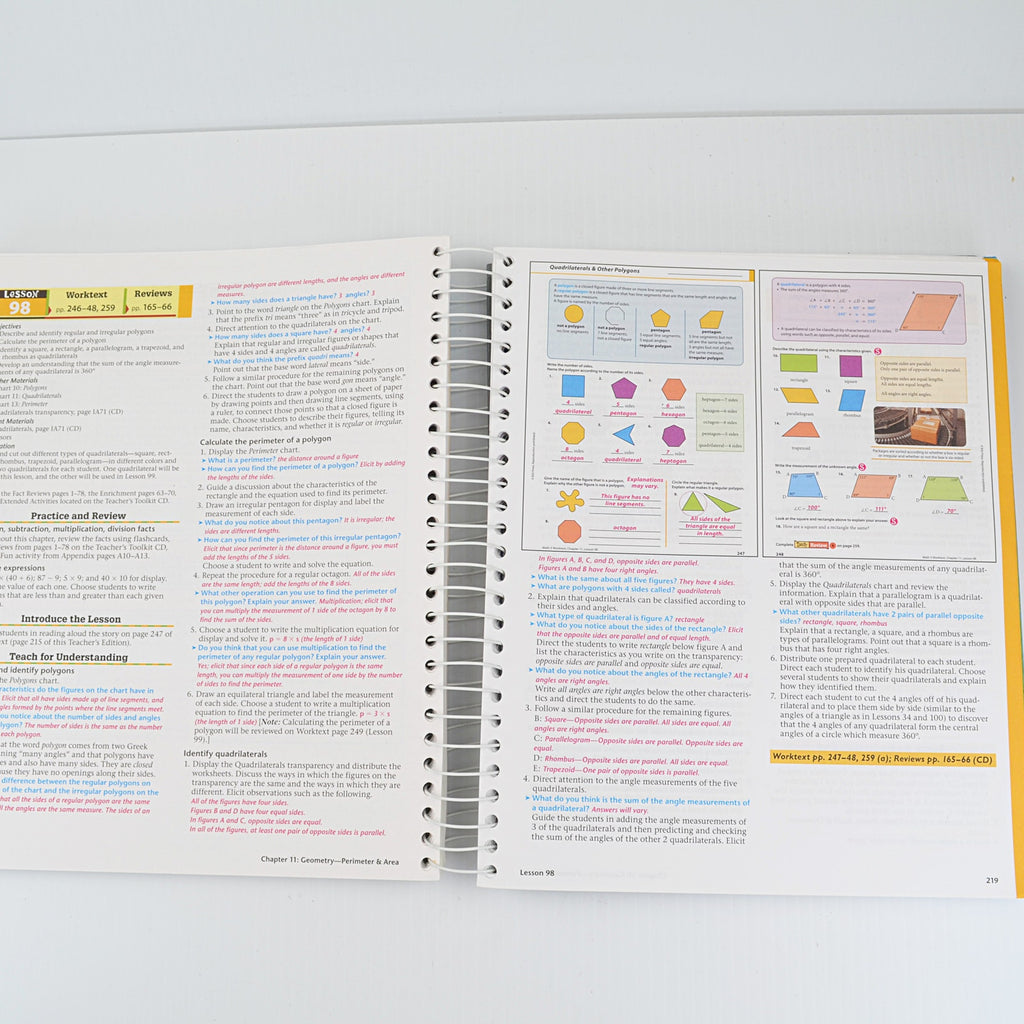 LESSON
98
Worktext
pp. 246–48, 259
Reviews
pp. 165–66
Describe and identify regular and irregular polygons
Calculate the perimeter of a polygon
identify a square, a rectangle, a parallelogram, a trapezoid, and
rhombus as quadrilaterals
evelop an understanding that the sum of the angle measure-
ments of any quadrilateral is 360°
her Materials
hart 10: Polygons
hart 11: Quadrilaterals
hart 13: Perimeter
adrilaterals transparency, page IA71 (CD)
nt Materials
adrilaterals, page IA71 (CD)
ssors
ation
nd cut out different types of quadrilaterals—square, rect-
rhombus, trapezoid, parallelogram—in different colors and
wo quadrilaterals for each student. One quadrilateral will be
this lesson, and the other will be used in Lesson 99.
the Fact Reviews pages 1–78, the Enrichment pages 63–70,
Extended Activities located on the Teacher's Toolkit CD.
Practice and Review
n, subtraction, multiplication, division facts
out this chapter, review the facts using flashcards,
iews from pages 1–78 on the Teacher's Toolkit CD,
Fun activity from Appendix pages A10–A13.
e expressions
× (40 + 6); 87 − 9; 5 × 9; and 40 × 10 for display.
e value of each one. Choose students to write
ns that are less than and greater than each given
Introduce the Lesson
students in reading aloud the story on page 247 of
xt (page 215 of this Teacher's Edition).
Teach for Understanding
nd identify polygons
he Polygons chart.
racteristics do the figures on the chart have in
Elicit that all have sides made up of line segments, and
gles formed by the points where the line segments meet.
ou notice about the number of sides and angles
lygon? The number of sides is the same as the number
each polygon.
at the word polygon comes from two Greek
ning "many angles" and that polygons have
es and also have many sides. They are closed
use they have no openings along their sides.
difference between the regular polygons on
of the chart and the irregular polygons on the
that all the sides of a regular polygon are the same
ll the angles are the same measure. The sides of an
irregular polygon are different lengths, and the angles are different
measures.
➤ How many sides does a triangle have? 3 angles? 3
3. Point to the word triangle on the Polygons chart. Explain
that the prefix tri means "three" as in tricycle and tripod.
4. Direct attention to the quadrilaterals on the chart.
➤ How many sides does a square have? 4 angles? 4
Explain that regular and irregular figures or shapes that
have 4 sides and 4 angles are called quadrilaterals.
➤ What do you think the prefix quadri means? 4
Point out that the base word lateral means "side."
5. Follow a similar procedure for the remaining polygons on
the chart. Point out that the base word gon means "angle."
6. Direct the students to draw a polygon on a sheet of paper
by drawing points and then drawing line segments, using
a ruler, to connect those points so that a closed figure is
made. Choose students to describe their figures, telling its
name, characteristics, and whether it is regular or irregular.
Calculate the perimeter of a polygon
1. Display the Perimeter chart.
➤ What is a perimeter? the distance around a figure
➤ How can you find the perimeter of a polygon? Elicit by adding
the lengths of the sides.
2. Guide a discussion about the characteristics of the
rectangle and the equation used to find its perimeter.
3. Draw an irregular pentagon for display and label the
measurement of each side.
➤ What do you notice about this pentagon? It is irregular; the
sides are different lengths.
➤ How can you find the perimeter of this irregular pentagon?
Elicit that since perimeter is the distance around a figure, you must
add the lengths of the 5 sides.
Choose a student to write and solve the equation.
4. Repeat the procedure for a regular octagon. All of the sides
are the same length; add the lengths of the 8 sides.
➤ What other operation can you use to find the perimeter of
this polygon? Explain your answer. Multiplication; elicit that
you can multiply the measurement of 1 side of the octagon by 8 to
find the sum of the sides.
5. Choose a student to write the multiplication equation for
display and solve it. p = 8 × s (the length of 1 side)
➤ Do you think that you can use multiplication to find the
perimeter of any regular polygon? Explain your answer.
Yes; elicit that since each side of a regular polygon is the same
length, you can multiply the measurement of one side by the number
of sides to find the perimeter.
6. Draw an equilateral triangle and label the measurement
of each side. Choose a student to write a multiplication
equation to find the perimeter of the triangle. p = 3 × s
(the length of 1 side) [Note: Calculating the perimeter of a
polygon will be reviewed on Worktext page 249 (Lesson
99).]
Identify quadrilaterals
1. Display the Quadrilaterals transparency and distribute the
worksheets. Discuss the ways in which the figures on the
transparency are the same and the ways in which they are
different. Elicit observations such as the following.
All of the figures have four sides.
Figures B and D have four equal sides.
In figures A and C, opposite sides are equal.
In all of the figures, at least one pair of opposite sides is parallel.
Chapter 11: Geometry—Perimeter & Area
Quadrilaterals & Other Polygons
A polygon is a closed figure made of three or more line segments.
A regular polygon is a closed figure that has line segments that are the same length and angles that
have the same measure.
A figure is named by the number of sides.
not a polygon
no line segments
not a polygon
line segments,
not a closed figure
pentagon
5 line segments,
5 equal angles,
regular polygon
pentagon
5 line segments but
not all the same length,
5 angles but not all
have the same measure,
irregular polygon
Write the number of sides.
Name the polygon according to the number of its sides.
1. 4 sides
quadrilateral
2. 5 sides
pentagon
3. 6 sides
hexagon
heptagon—7 sides
hexagon—6 sides
octagon—8 sides
pentagon—5 sides
quadrilateral—4 sides
4. 8 sides
octagon
5. 4 sides
quadrilateral
6. 7 sides
heptagon
Give the name of the figure that is a polygon.
Explain why the other figure is not a polygon.
Explanations
may vary.
7. This figure has no
line segments.
8. octagon
Circle the regular triangle.
Explain what makes it a regular polygon.
9. All sides of the
triangle are equal
in length.
247
A quadrilateral is a polygon with 4 sides.
• The sum of the angles measures 360°.
• A quadrilateral can be classified by characteristics of its sides
using words such as opposite, parallel, and equal.
Describe the quadrilateral using the characteristics given.
10. rectangle
11. square
Opposite sides are parallel.
Only one pair of opposite sides is parallel.
Opposite sides are equal lengths.
All sides are equal lengths.
All angles are right angles.
12. parallelogram
13. rhombus
14. trapezoid
Packages are sorted according to whether a box is regular
or irregular and whether or not the box is sealed.
Write the measurement of the unknown angle.
15. ∠C = 100°
16. ∠C = 111°
17. ∠D = 70°
Look at the square and rectangle above to explain your answer.
18. How are a square and a rectangle the same?
Complete Daily Review on page 259.
248
In figures A, B, C, and D, opposite sides are parallel.
Figures A and B have four right angles.
➤ What is the same about all five figures? They have 4 sides.
➤ What are polygons with 4 sides called? quadrilaterals
2. Explain that quadrilaterals can be classified according to
their sides and angles.
➤ What type of quadrilateral is figure A? rectangle
➤ What do you notice about the sides of the rectangle? Elicit
that the opposite sides are parallel and of equal length.
Direct the students to write rectangle below figure A and
list the characteristics as you write on the transparency:
opposite sides are parallel and opposite sides are equal.
➤ What do you notice about the angles of the rectangle? All 4
angles are right angles.
Write all angles are right angles below the other characteris-
tics and direct the students to do the same.
3. Follow a similar procedure for the remaining figures.
B: Square—Opposite sides are parallel. All sides are equal. All
angles are right angles.
C: Parallelogram—Opposite sides are parallel. Opposite sides are
equal.
D: Rhombus—Opposite sides are parallel. All sides are equal.
E: Trapezoid—One pair of opposite sides is parallel.
4. Direct attention to the angle measurements of the five
quadrilaterals.
➤ What do you think is the sum of the angle measurements of
a quadrilateral? Answers will vary.
Guide the students in adding the angle measurements of
3 of the quadrilaterals and then predicting and checking
the sum of the angles of the other 2 quadrilaterals. Elicit
that the sum of the angle measurements of any quadrilat-
eral is 360°.
5. Display the Quadrilaterals chart and review the
information. Explain that a parallelogram is a quadrilat-
eral with opposite sides that are parallel.
➤ What other quadrilaterals have 2 pairs of parallel opposite
sides? rectangle, square, rhombus
Explain that a rectangle, a square, and a rhombus are
types of parallelograms. Point out that a square is a rhom-
bus that has four right angles.
6. Distribute one prepared quadrilateral to each student.
Direct each student to identify his quadrilateral. Choose
several students to show their quadrilaterals and explain
how they identified them.
7. Direct each student to cut the 4 angles off of his quad-
rilateral and to place them side by side (similar to the
angles of a triangle as in Lessons 34 and 100) to discover
that the 4 angles of any quadrilateral form the central
angles of a circle which measure 360°.
Worktext pp. 247–48, 259 (a); Reviews pp. 165–66 (CD)
Lesson 98
219